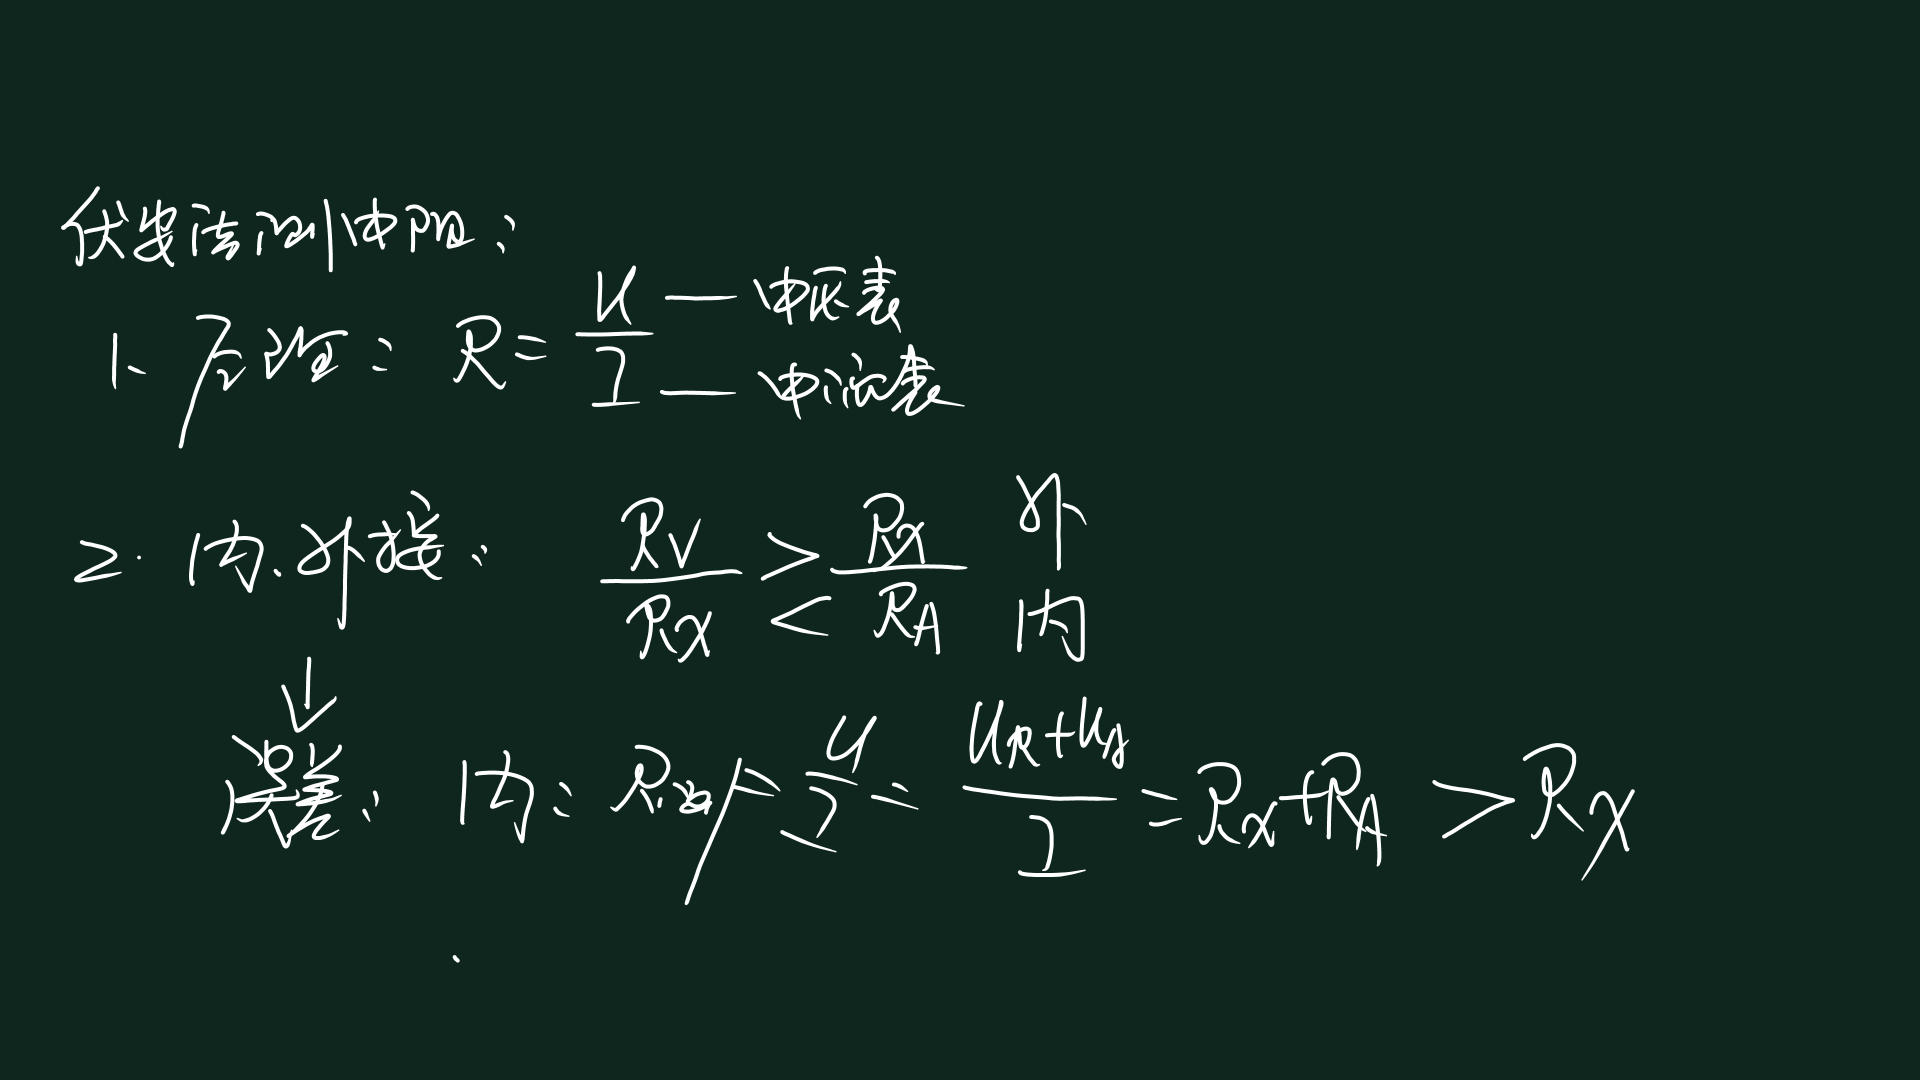 伏安法测电阻:
1、原理: R = U/I — 电压表
— 电流表
2. 内、外接: Rv/Rx > Rx/RA 外
< 内
误差: 内: R测 = U/I = (UR+UA)/I = Rx+RA > Rx